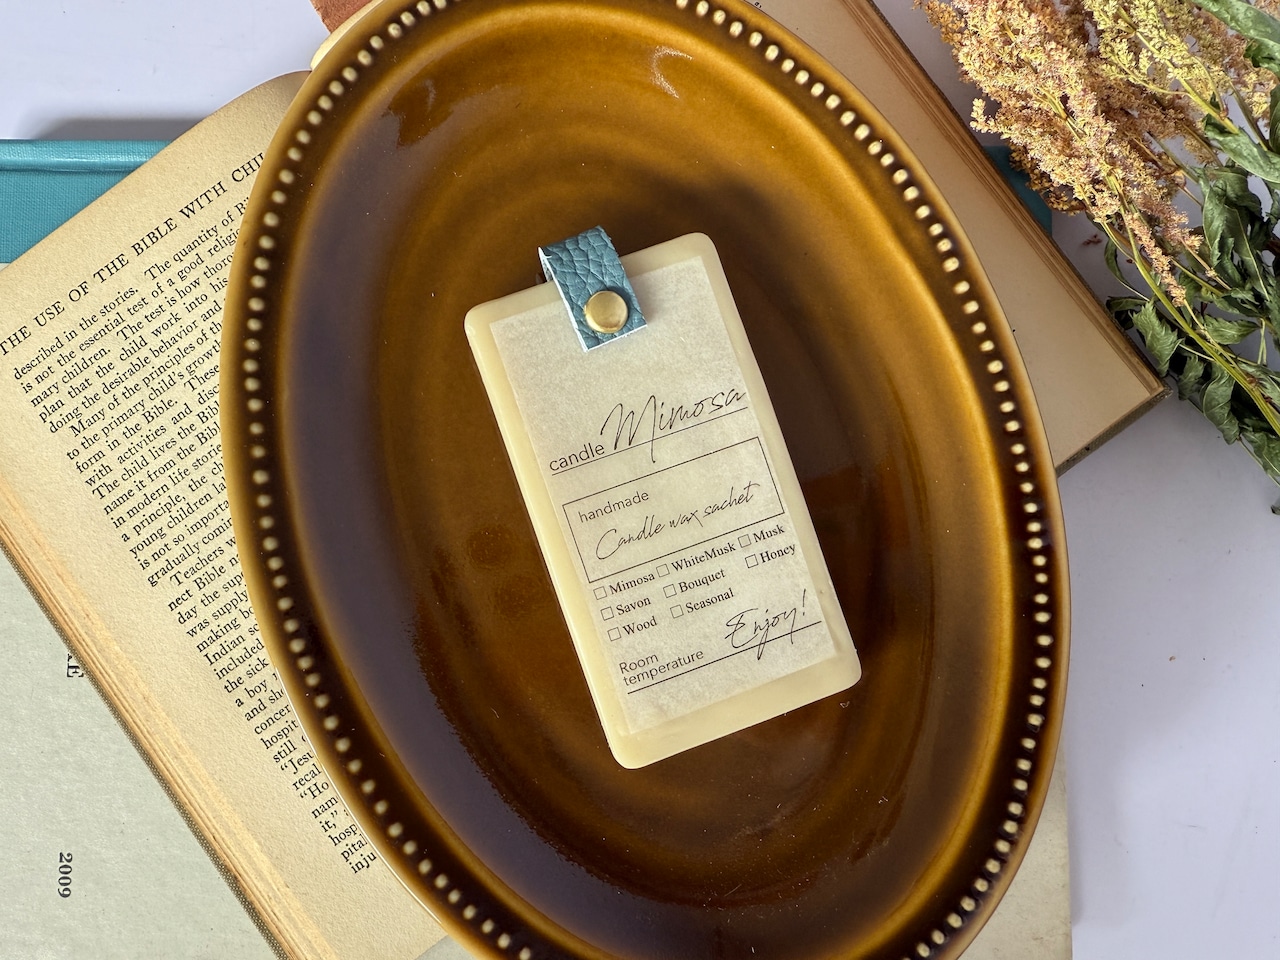 THE USE OF THE BIBLE WITH
described in the stories. The quantity of
is not the essential test of a good
mary children. The test is how
plan that the child work into his
doing the desirable behavior and
Many of the principles of
to the primary child's
form in the Bible. These
with activities and
The child lives the
name it from the
in modern life
a principle, the
young children
is not so
gradually
Teachers
nect Bible
day the
was supply
making
Indian
included
the sick
a boy
and
hospit
still
"Jesu
recal
"Ho
nam
it,"
hosp
pital
inju
2009
candle Mimosa
handmade
Candle wax sachet
Mimosa WhiteMusk Musk
Savon Bouquet Honey
Wood Seasonal
Room
temperature Enjoy!